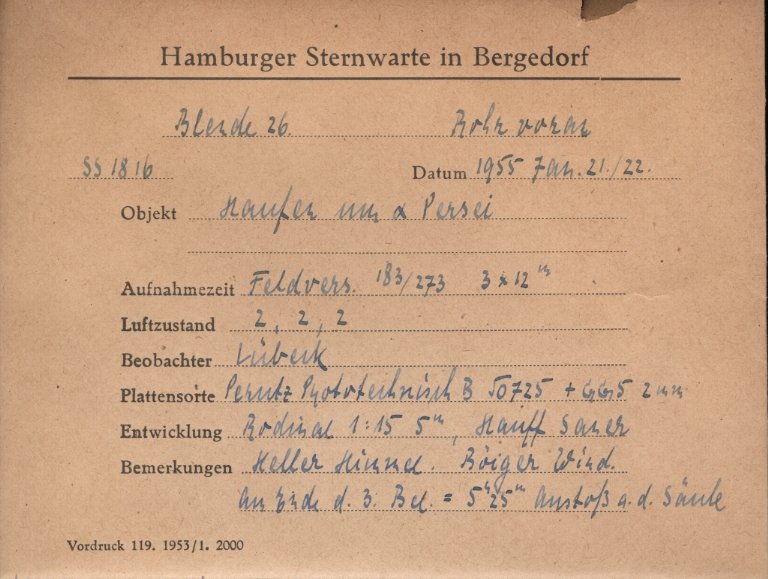 Hamburger Sternwarte in Bergedorf
Blende 26 Rohr voran
SS 1816 Datum 1955 Jan. 21./22.
Objekt Haufen um α Persei
Aufnahmezeit Feldvers. 183/273 3 x 12 ᵐ
Luftzustand 2, 2, 2
Beobachter Lübeck
Plattensorte Perutz Phototechnisch B + GG5 2 mm
Entwicklung Rodinal 1:15 5ᵐ, Hauff sauer
Bemerkungen Heller Himmel. Böiger Wind.
Am Ende d. 3. Bel. = 5ʰ25ᵐ Anstoß a. d. Säule
Vordruck 119. 1953/1. 2000